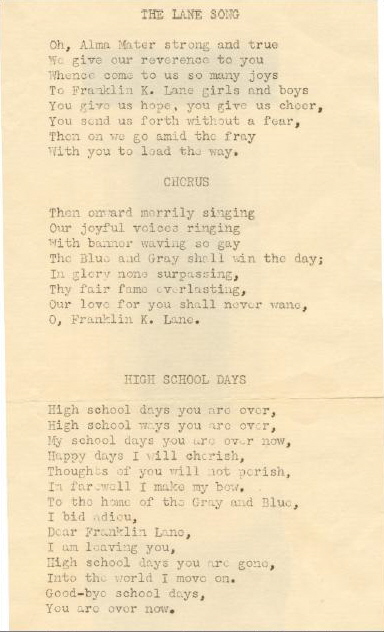 THE LANE SONG
Oh, Alma Mater strong and true
We give our reverence to you
Whence come to us so many joys
To Franklin K. Lane girls and boys
You give us hope, you give us cheer,
You send us forth without a fear,
Then on we go amid the fray
With you to lead the way.
CHORUS
Then onward merrily singing
Our joyful voices ringing
With banner waving so gay
The Blue and Gray shall win the day;
In glory none surpassing,
Thy fair fame everlasting,
Our love for you shall never wane,
O, Franklin K. Lane.
HIGH SCHOOL DAYS
High school days you are over,
High school ways you are over,
My school days you are over now,
Happy days I will cherish,
Thoughts of you will not perish,
In farewell I make my bow.
To the home of the Gray and Blue,
I bid adieu,
Dear Franklin Lane,
I am leaving you,
High school days you are gone,
Into the world I move on.
Good-bye school days,
You are over now.